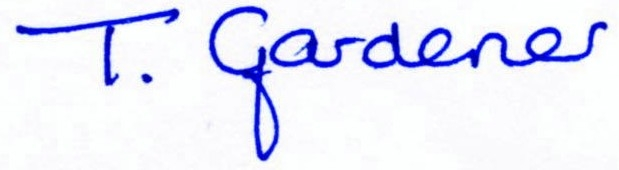 T. Gardener